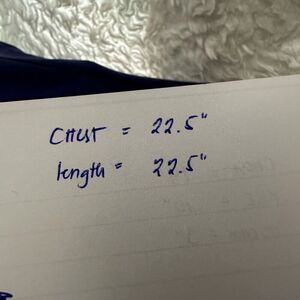 CHEST = 22.5"
length = 22.5"